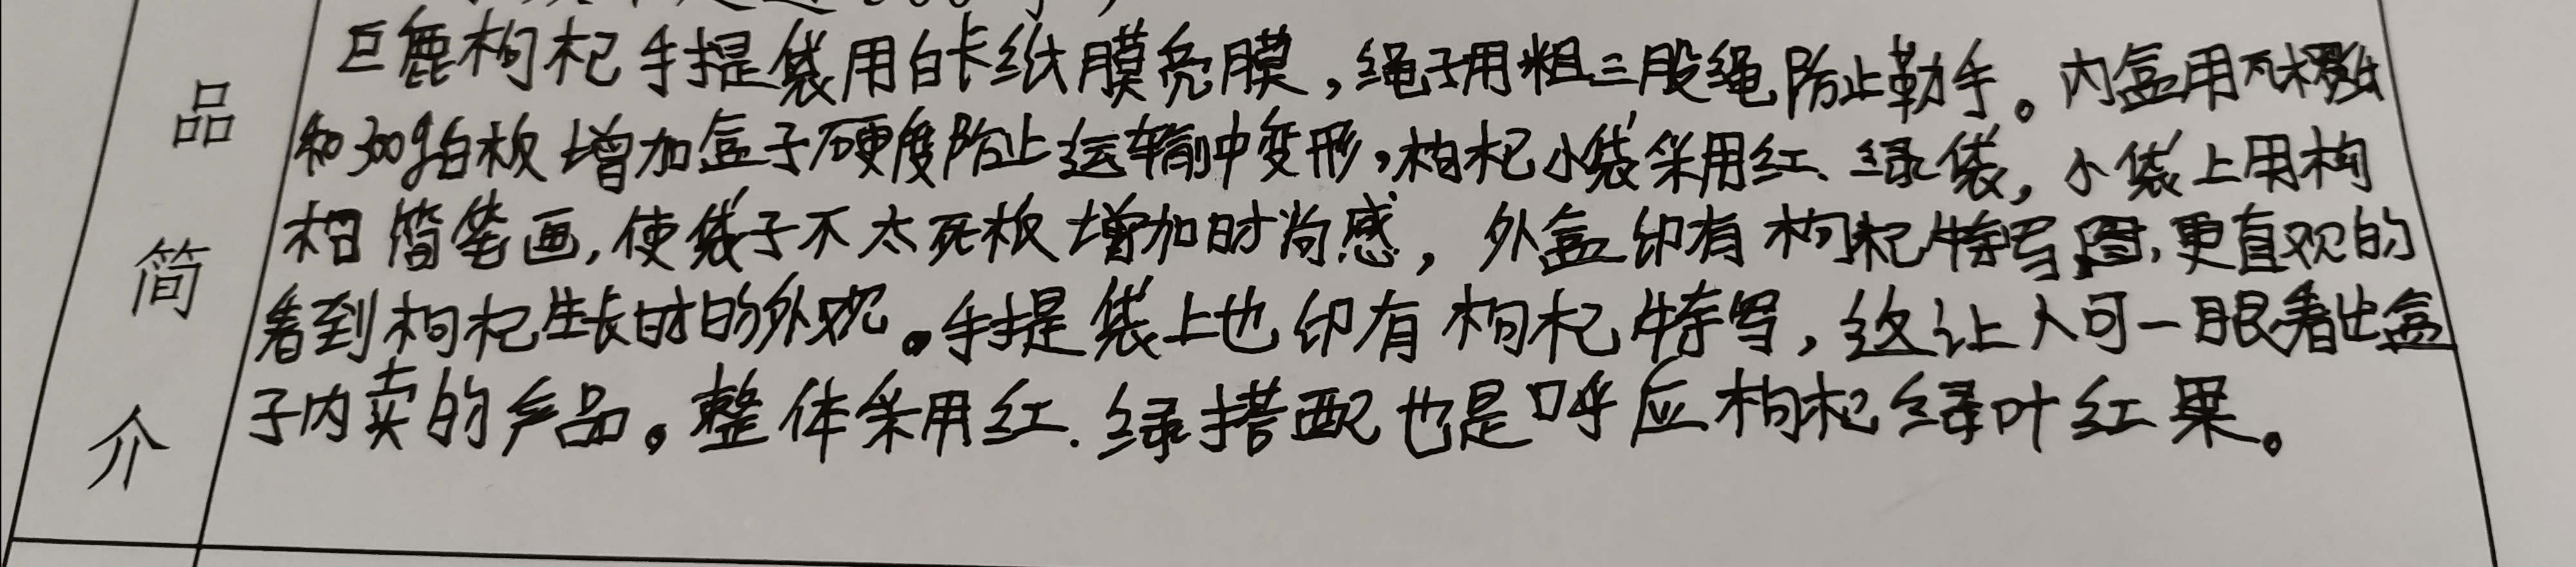 品简介
巨鹿枸杞手提袋用白卡纸膜亮膜，绳子用粗三股绳防止勒手。内盒用瓦楞纸
和300g白板增加盒子硬度防止运输中变形，枸杞小袋采用红、绿袋，小袋上用枸
杞简笔画，使袋子不太死板增加时尚感，外盒印有枸杞特写图，更直观的
看到枸杞生长时的外观。手提袋上也印有枸杞特写，这让人可一眼看出盒
子内卖的产品。整体采用红、绿搭配也是呼应枸杞绿叶红果。